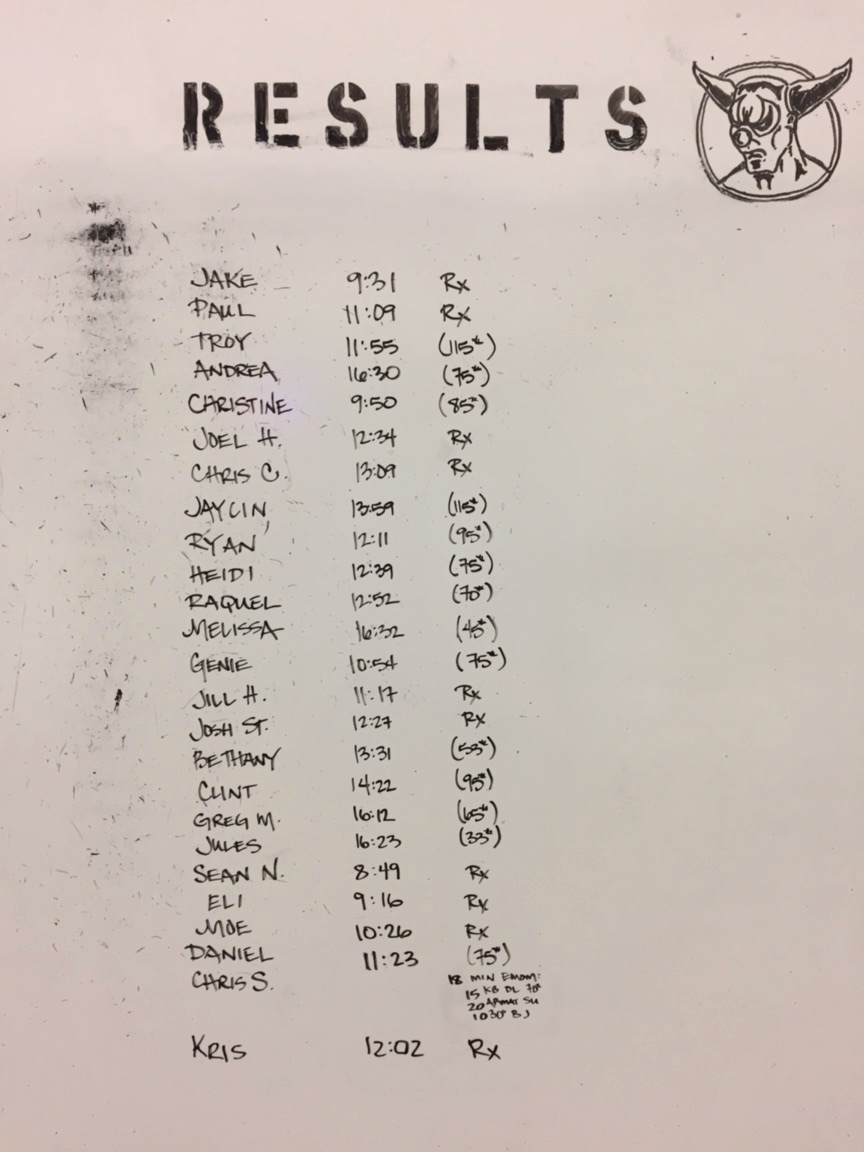 RESULTS
JAKE 9:31 Rx
PAUL 11:09 Rx
TROY 11:55 (115#)
ANDREA 16:30 (75#)
CHRISTINE 9:50 (85#)
JOEL H. 12:34 Rx
CHRIS C. 13:09 Rx
JAYLIN 13:59 (115#)
RYAN 12:11 (95#)
HEIDI 12:39 (75#)
RAQUEL 12:52 (70#)
MELISSA 16:32 (45#)
GENIE 10:54 (75#)
JILL H. 11:17 Rx
JOSH ST. 12:27 Rx
BETHANY 13:31 (53#)
CLINT 14:22 (95#)
GREG M. 16:12 (65#)
JULES 16:23 (33#)
SEAN N. 8:49 Rx
ELI 9:16 Rx
MOE 10:26 Rx
DANIEL 11:23 (75#)
CHRIS S. 18 MIN EMOM:
15 KB DL 70#
20 ABMAT SU
10 30" BJ
KRIS 12:02 Rx